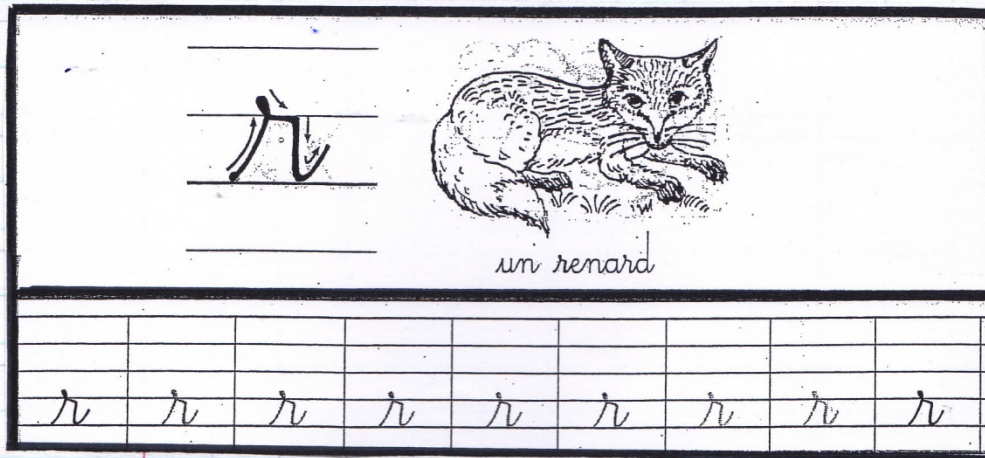 r
un renard
r r r r r r r r r